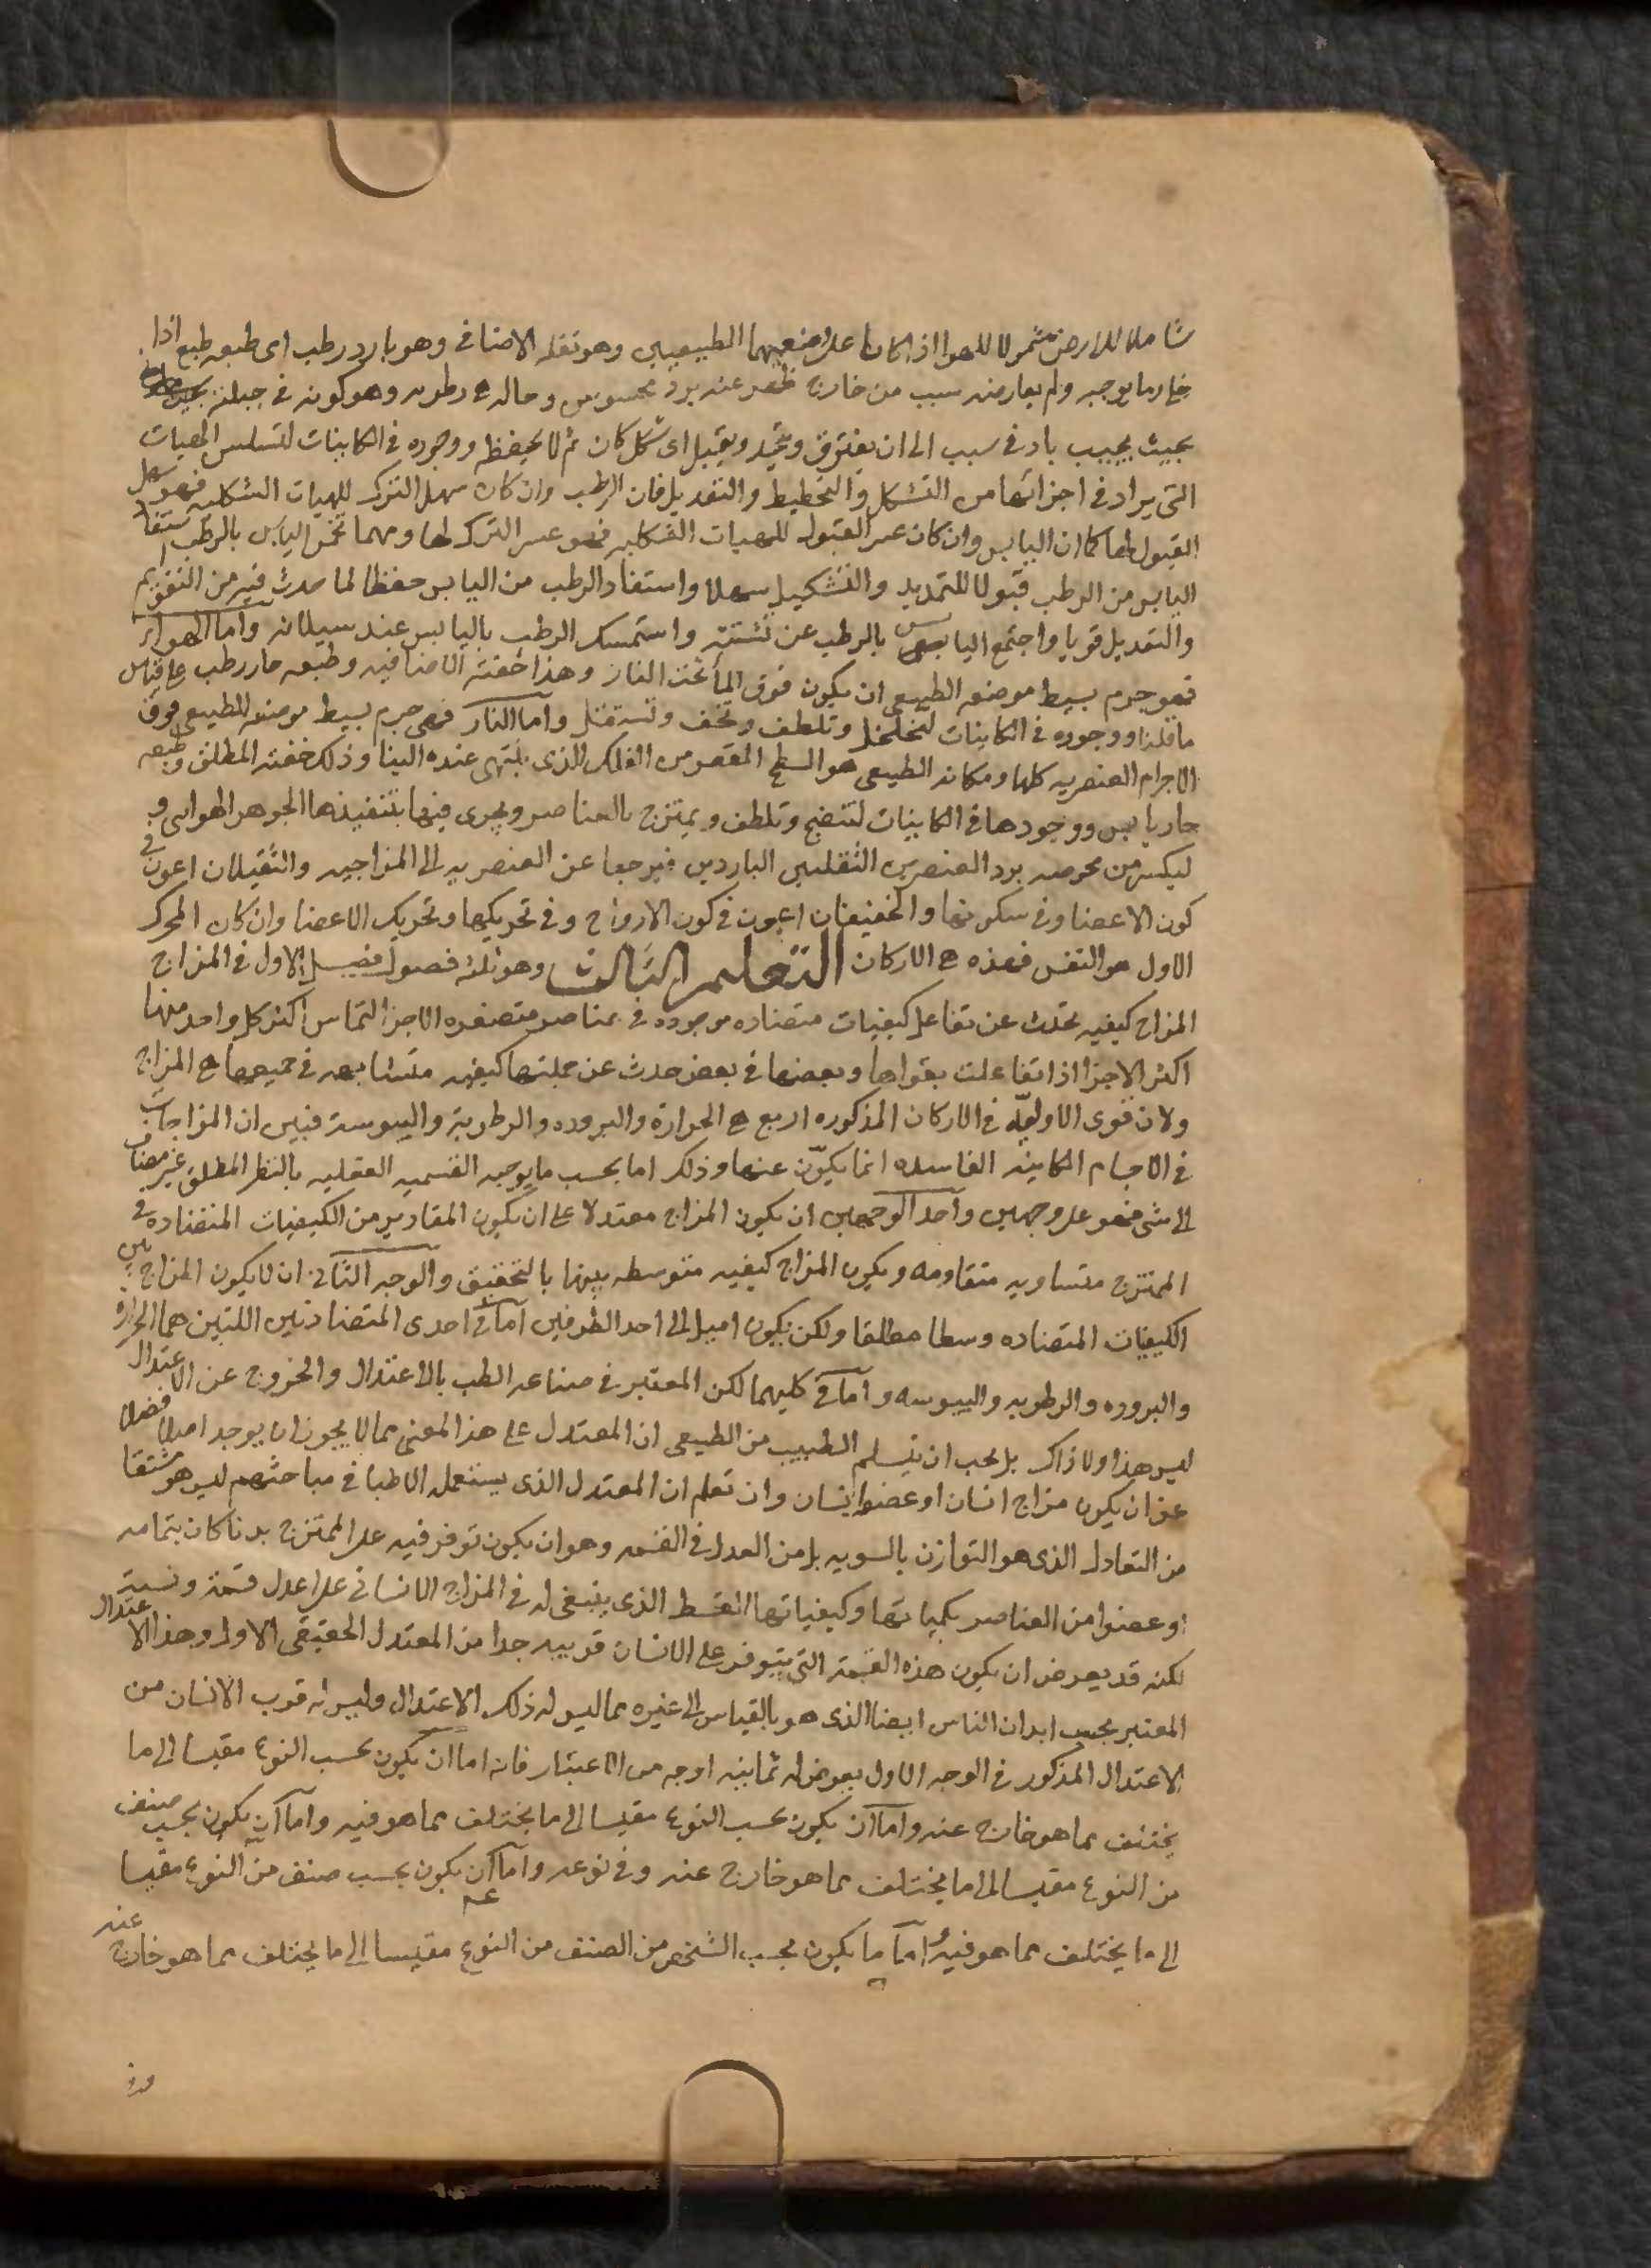 شاملا للارض مشمولا للهوا اذا كانا على وضعيهما الطبيعيين وهو ثقله الاضافى وهو بارد رطب اى طبعه طبع اذا
خلى وما يوجبه ولم يعارضه سبب من خارج ظهر عنه برد محسوس وحاله هى رطوبه وهو كونه فى جبلته
بحيث يجيب بادنى سبب الى ان يفترق ويتحد ويقبل اى شكل كان ثم لا يحفظه ووجوده فى الكاينات لتسلس الهيات
التى يراد فى اجزائها من التشكل والتخطيط والتعديل فان الرطب وان كان سهل الترك للهيات الشكليه فهو سهل
القبول لها كما ان اليابس وان كان عسر القبول للهيات الشكليه فهو عسر الترك لها ومهما تخمر اليابس بالرطب استفاد
اليابس من الرطب قبولا للتمديد والتشكيل سهلا واستفاد الرطب من اليابس حفظا لما حدث فيه من التقويم
والتعديل قويا واجتمع اليابس بالرطب عن تشتته واستمسك الرطب باليابس عند سيلانه واما الهواء
فهو جرم بسيط موضعه الطبيعى ان يكون فوق الما تحت النار وهذا خفته الاضافيه وطبعه حار رطب على قياس
ما قلنا ووجوده فى الكاينات لتخلخل وتلطف وتخف وتستقل واما النار فهى جرم بسيط موضعه الطبيعى فوق
الاجرام العنصريه كلها ومكانه الطبيعى هو السطح المقعر من الفلك الذى ينتهى عنده الينا وذلك خفته المطلق وطبعه
حار يابس ووجودها فى الكاينات لتنضج وتلطف ويمتزج بالعناصر ويجرى فيها بتنفيذها الجوهر الهوايى و
ليكسر من محوضه برد العنصرين الثقلين الباردين فيرجعا عن العنصريه الى المزاجيه والثقيلان اعون فى
كون الاعضا وفى سكونها والخفيفان اعون فى كون الارواح وفى تحريكها وتحريك الاعضا وان كان المحرك
الاول هو النفس فهذه هى الاركان التعليم الثالث وهو ثلثه فصول فصل الاول فى المزاج
المزاج كيفيه تحدث عن تفاعل كيفيات متضاده موجوده فى عناصر متصغره الاجزا لتماس اكثر كل واحد منها
اكثر الاجزا اذا تفاعلت بقواها وبعضها فى بعض حدث عن جملتها كيفيه متشابهه فى جميعها هى المزاج
ولان قوى الاوليه فى الاركان المذكوره اربع هى الحرارة والبروده والرطوبة واليبوسة فبين ان المزاجات
فى الاجسام الكاينه الفاسده انما يكون عنها وذلك اما بحسب ما يوجبه القسميه العقليه بالنظر المطلق غير مضاف
الى شى فهو على وجهين واحد الوجهين ان يكون المزاج معتدلا على ان يكون المقادير من الكيفيات المتضاده فى
الممتزج متساويه متقاومه ويكون المزاج كيفيه متوسطه بينها بالتحقيق والوجه الثانى ان لا يكون المزاج بين
الكيفيات المتضاده وسطا مطلقا ولكن يكون اميل الى احد الطرفين اما فى احدى المتضادتين اللتين هما الحرارة
والبروده والرطوبه واليبوسه واما فى كليهما لكن المعتبر فى صناعه الطب بالاعتدال والخروج عن الاعتدال
ليس هذا ولا ذاك بل يجب ان يتسلم الطبيب من الطبيعى ان المعتدل على هذا المعنى مما لا يجوز ان يوجد اصلا فضلا
عن ان يكون مزاج انسان او عضو انسان وان تعلم ان المعتدل الذى يستعمله الاطبا فى مباحثهم ليس هو مشتقا
من التعادل الذى هو التوازن بالسويه بل من العدل فى القسمه وهو ان يكون توفر فيه على الممتزج بدنا كان بتمامه
او عضوا من العناصر بكمياتها وكيفياتها القسط الذى ينبغى له فى المزاج الانسانى على اعدل قسمة ونسبة
لكنه قد يعرض ان يكون هذه القسمة التى يتوفر على الانسان قريبه جدا من المعتدل الحقيقى الاول وهذا الاعتدال
المعتبر بحسب ابدان الناس ايضا الذى هو بالقياس الى غيره مما ليس له ذلك الاعتدال وليس له قرب الانسان من
الاعتدال المذكور فى الوجه الاول يعرض له ثمانيه اوجه من الاعتبار فانه اما ان يكون بحسب النوع مقيسا الى ما
يختلف مما هو خارج عنه واما ان يكون بحسب النوع مقيسا الى ما يختلف مما هو فيه واما ان يكون بحسب صنف
من النوع مقيسا الى ما يختلف مما هو خارج عنه وفى نوعه واما ان يكون بحسب صنف من النوع مقيسا
الى ما يختلف مما هو فيه واما ما يكون بحسب الشخص من الصنف من النوع مقيسا الى ما يختلف مما هو خارج عنه